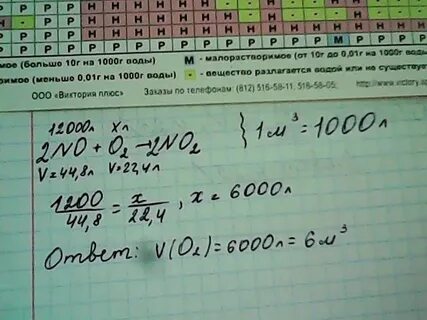 P P P P - P P
мое (больше 10г на 1000г воды) М - малорастворимое (от 10г до 0,01г на 1000г воды)
римое (меньше 0,01г на 1000г воды) - - вещество разлагается водой или не существует
ООО «Виктория плюс» Заказы по телефонам: (812) 516-58-11, 516-58-05; http://www.victory.sp
12000л x л
2NO + O₂ → 2NO₂ } 1 м³ = 1000 л
V=44,8л V=22,4л
1200/44,8 = x/22,4, x = 6000л
Ответ: V(O₂) = 6000л = 6 м³